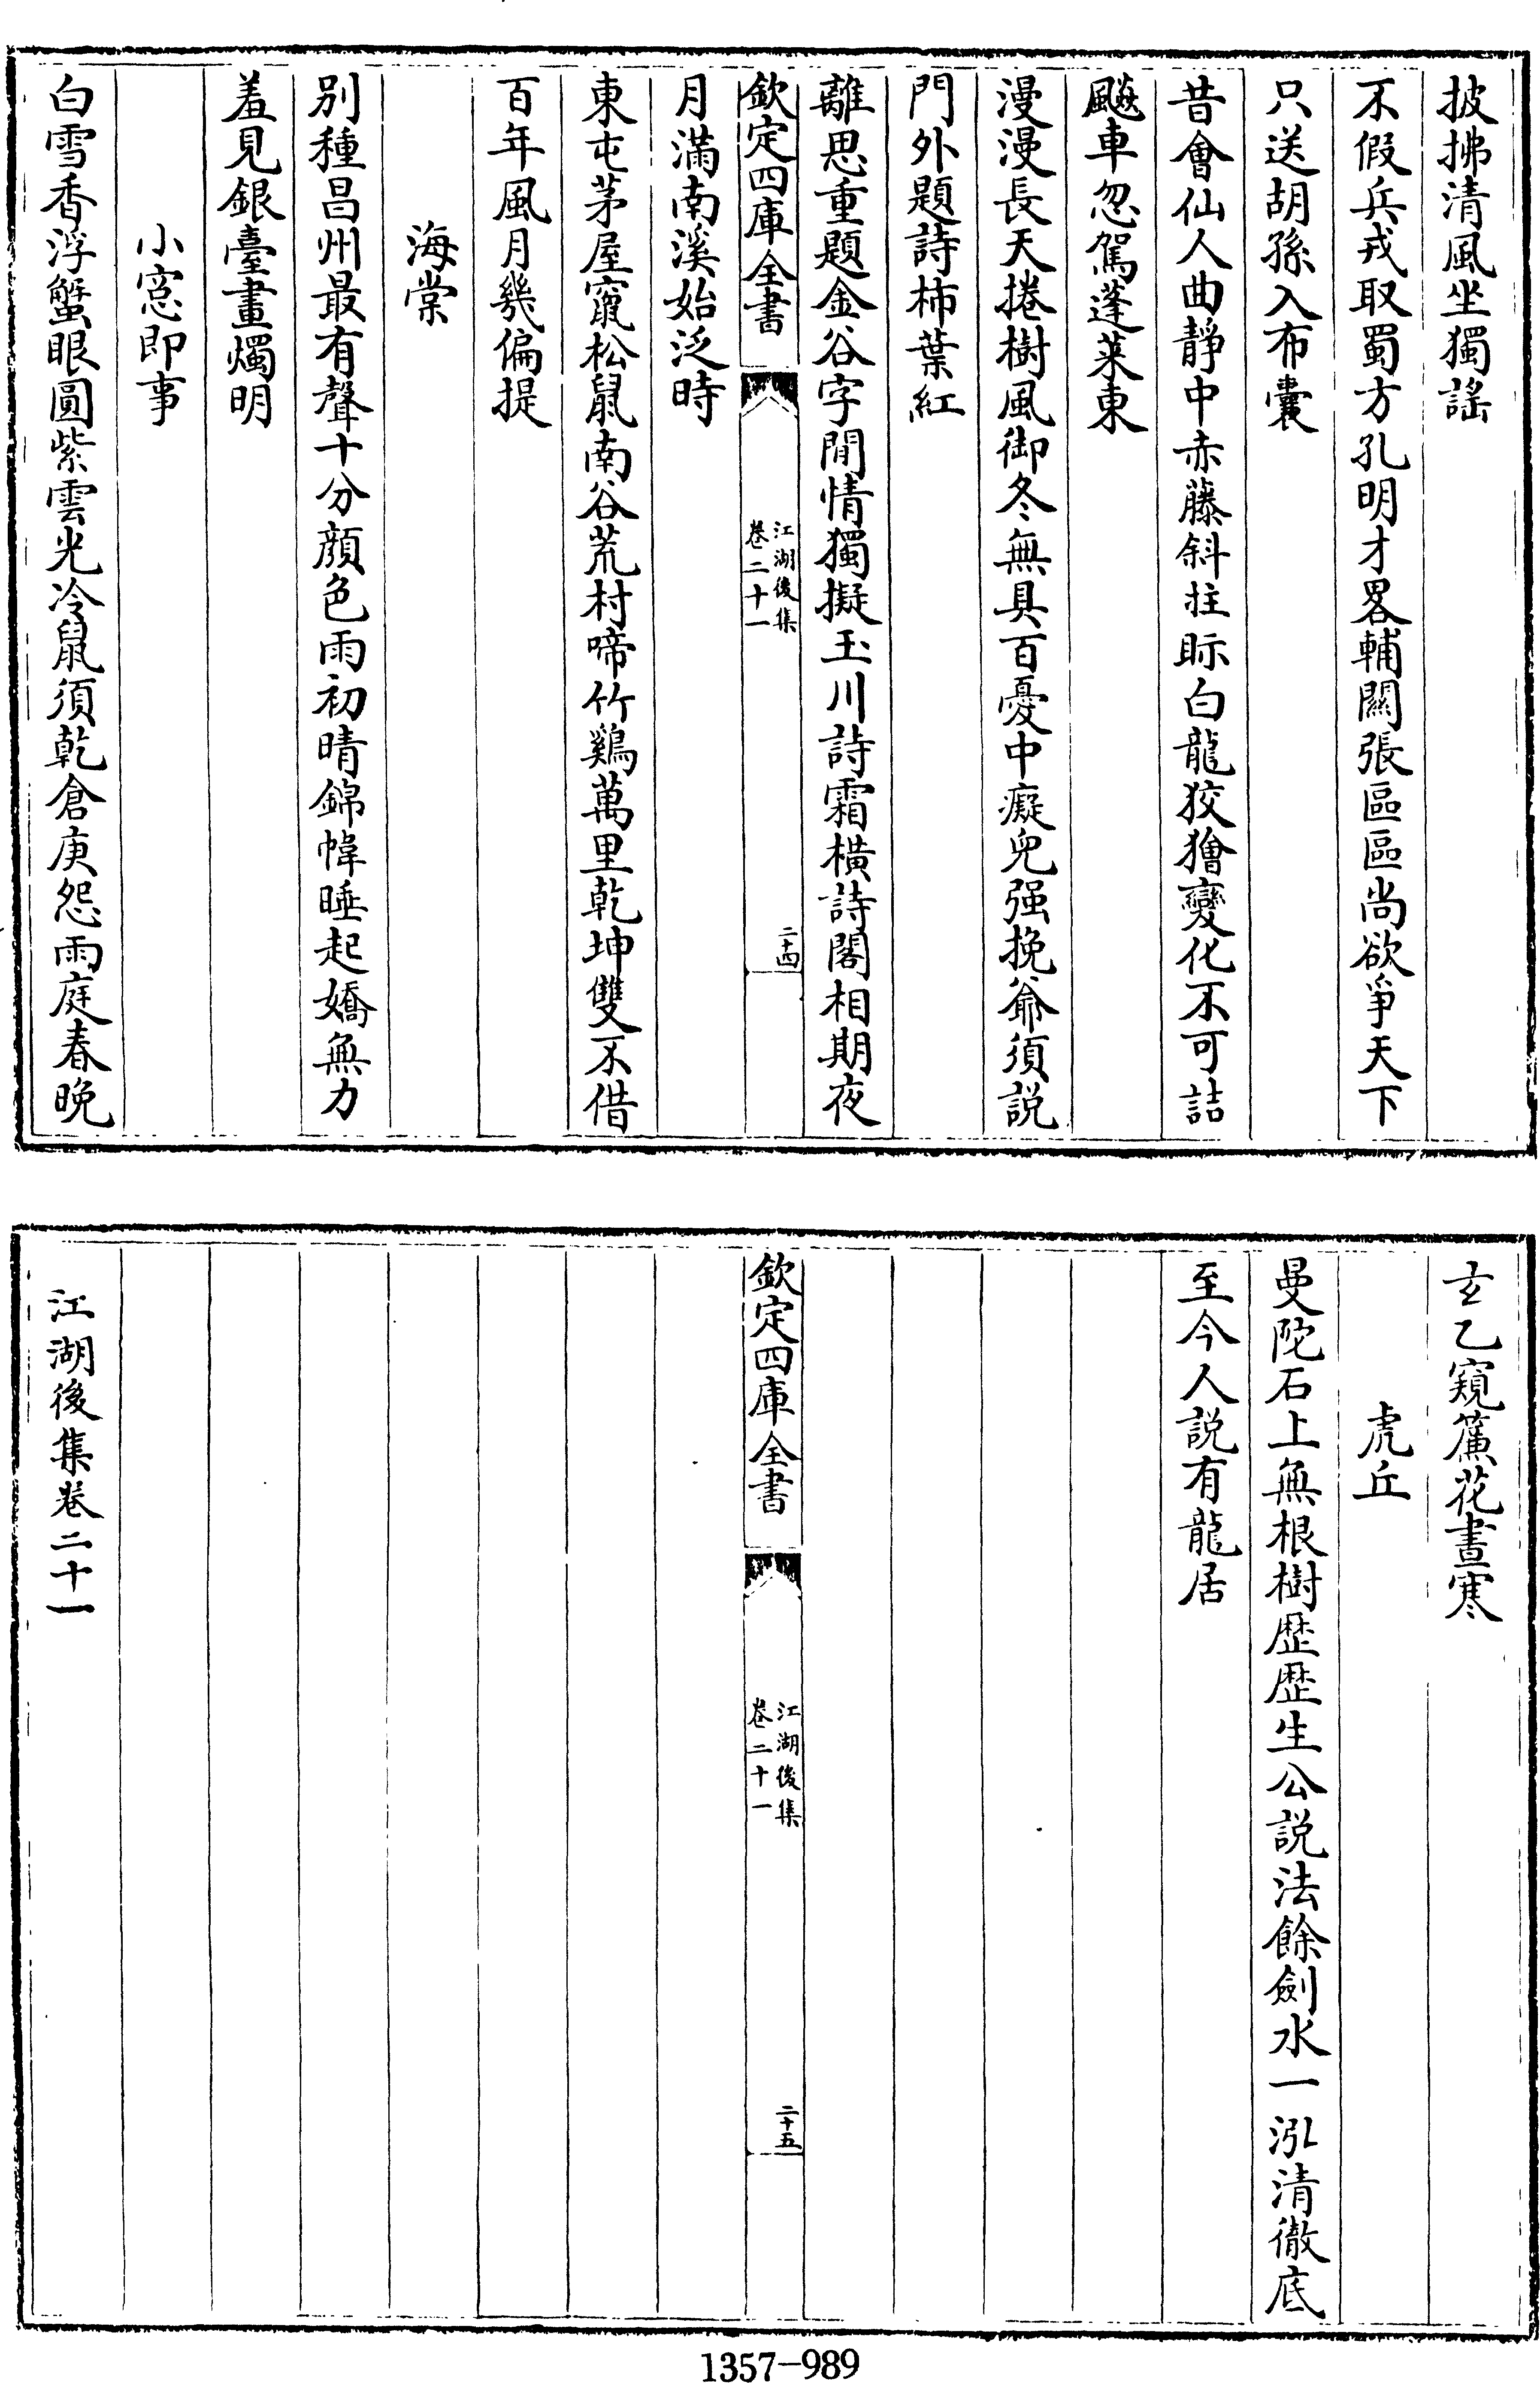 披拂清風坐獨謡
不假兵戎取蜀方孔明才畧輔關張區區尚欲爭天下
只送胡孫入布囊
昔會仙人曲靜中赤藤斜拄眎白龍狡獪變化不可詰
飈車忽駕蓬萊東
漫漫長天捲樹風御冬無具百憂中癡兒强挽爺須説
門外題詩柿葉紅
離思重題金谷字閒情獨擬玉川詩霜橫詩閣相期夜
欽定四庫全書
江湖後集
卷二十一
二十四
月滿南溪始泛時
東屯茅屋竄松鼠南谷荒村啼竹鷄萬里乾坤雙不借
百年風月幾偏提
海棠
別種昌州最有聲十分顔色雨初晴錦幃睡起嬌無力
羞見銀臺畫燭明
小窓即事
白雪香浮蟹眼圓紫雲光冷鼠須乾倉庚怨雨庭春晚
玄乙窺簾花晝寒
虎丘
曼陀石上無根樹歴歴生公説法餘劍水一泓清徹底
至今人説有龍居
欽定四庫全書
江湖後集
卷二十一
二十五
江湖後集卷二十一
1357-989